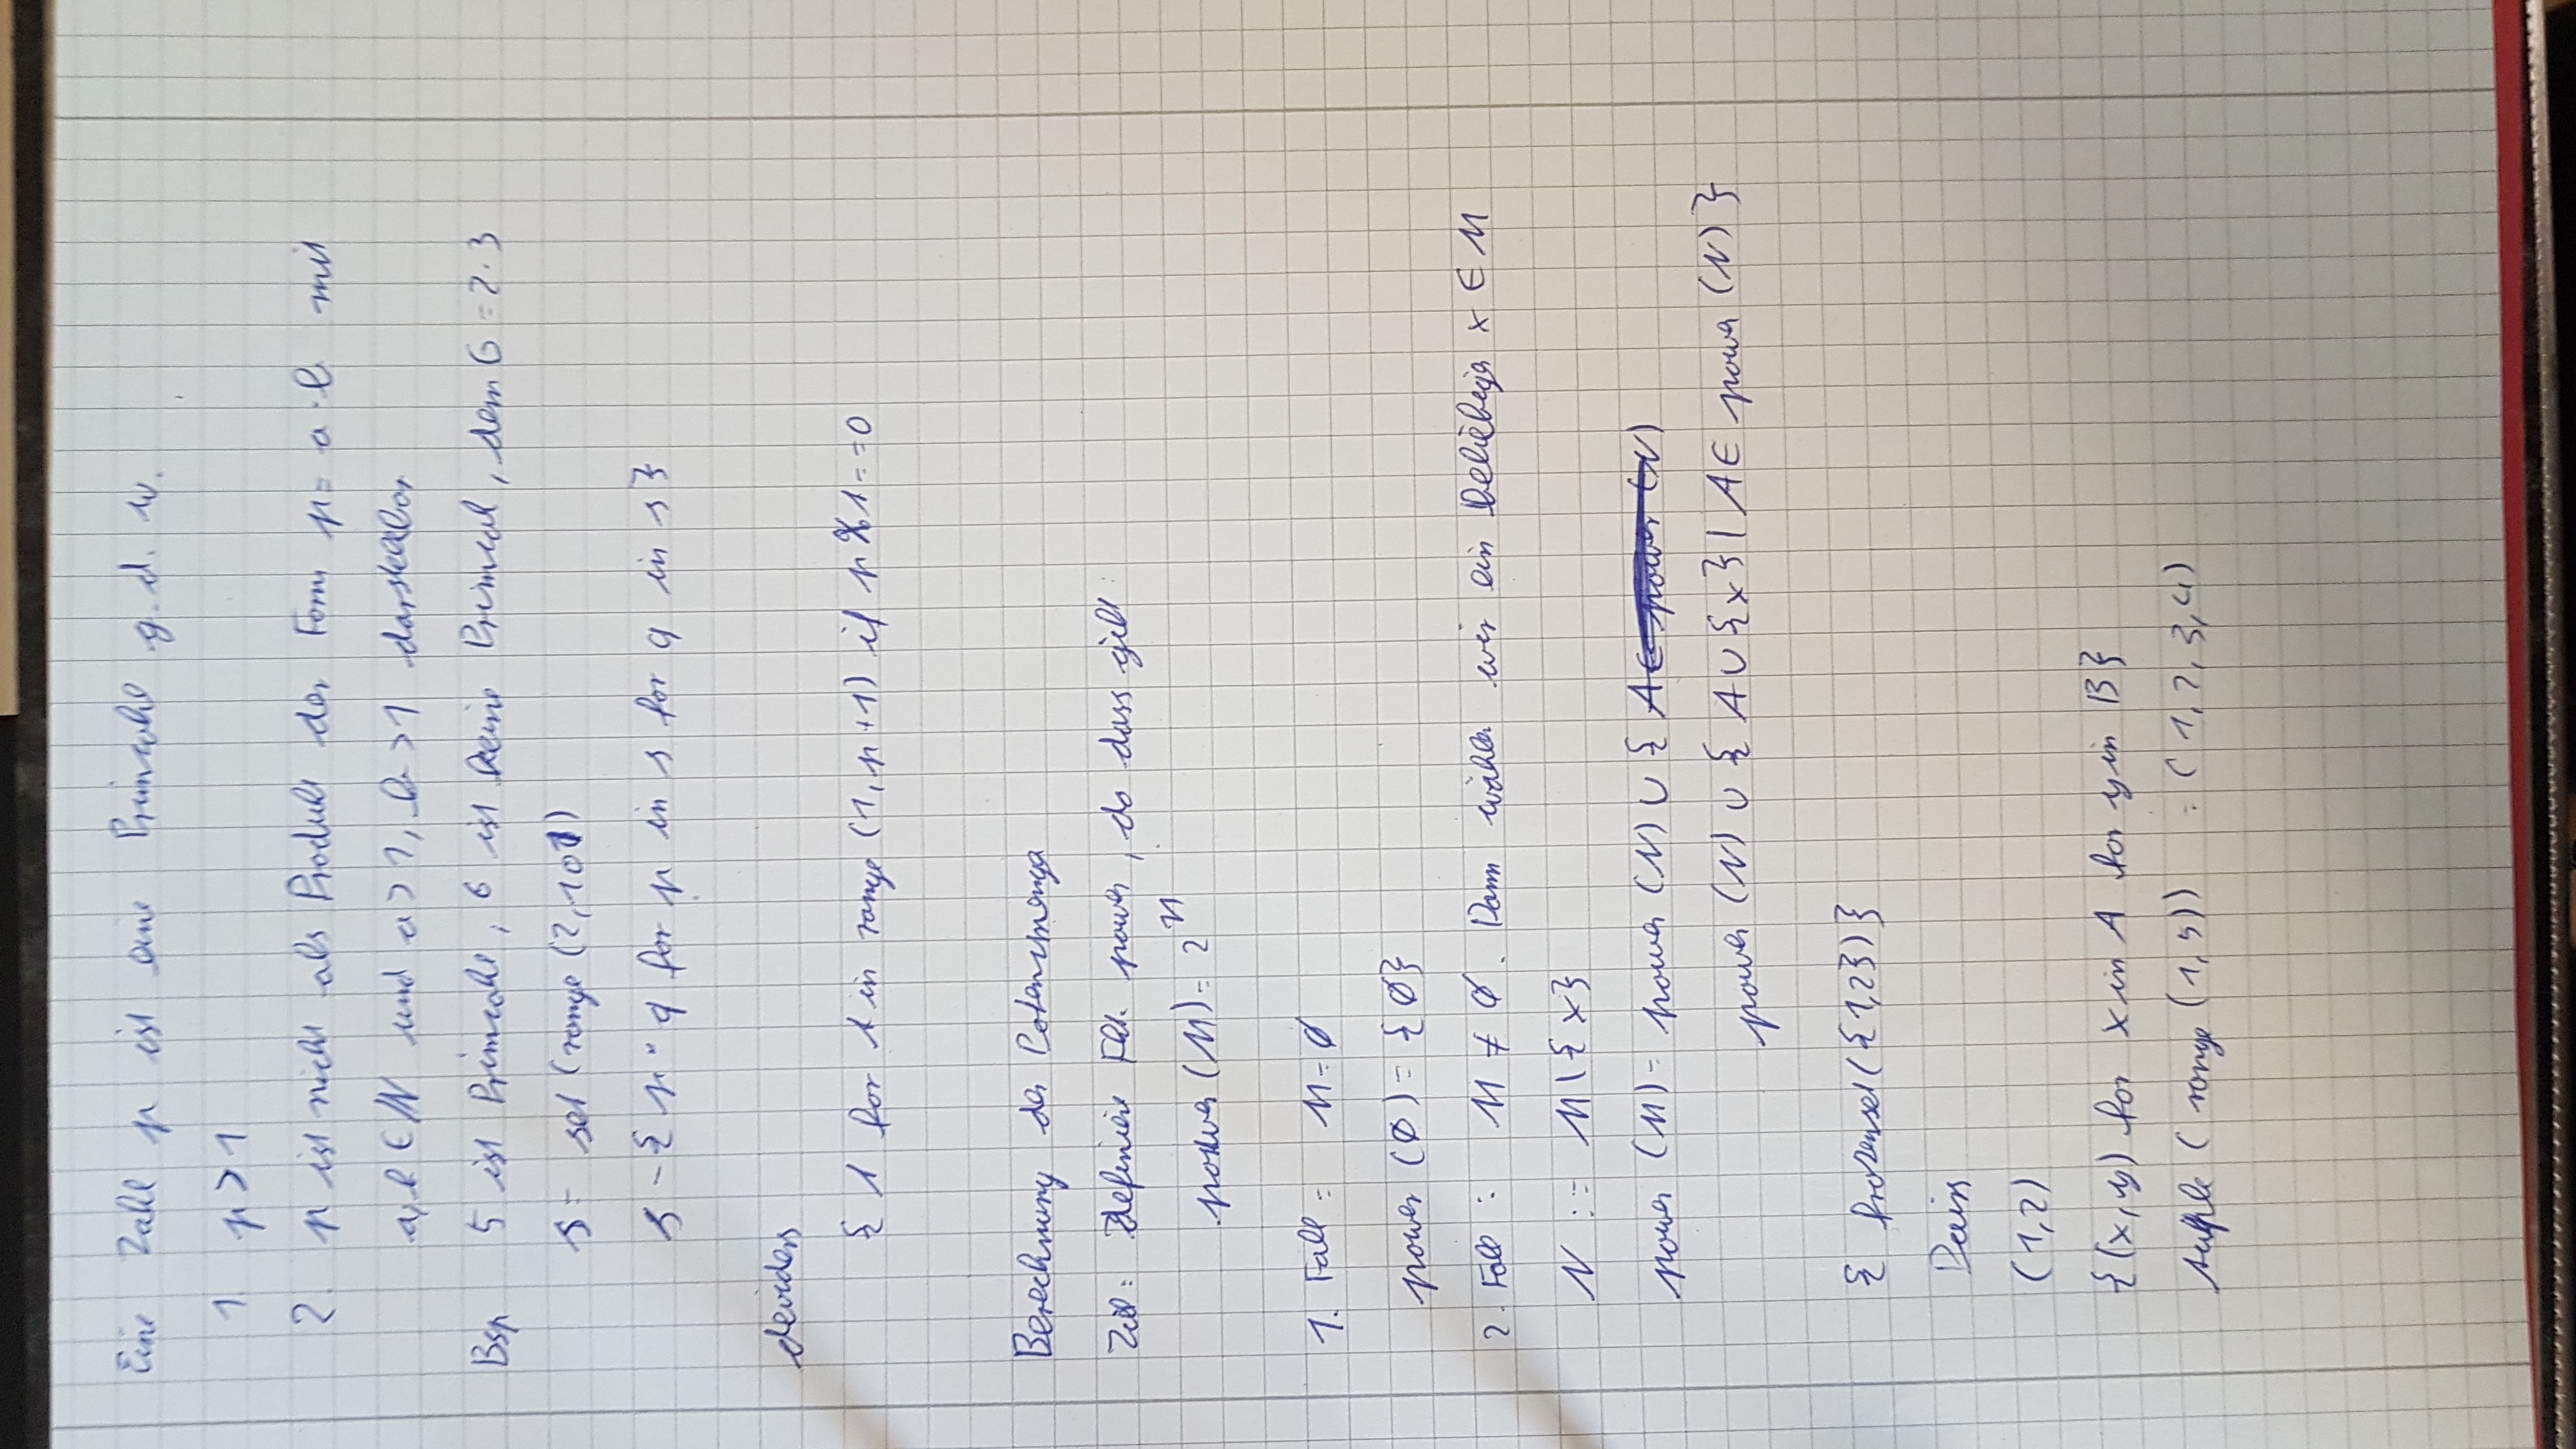 Eine Zahl p ist eine Primzahl g.d.w.
1. p > 1
2. p ist nicht als Produkt der Form p = a · b mit
a, b ∈ ℕ und a > 1, b > 1 darstellbar
Bsp 5 ist Primzahl, 6 ist keine Primzal, denn 6 = 2 · 3
s = set (range (2, 101)
s - { p * q for p in s for q in s }
deviders
{ t for t in range (1, p+1) if p % t == 0
Berechnung der Potenzmenge
Ziel: Definiere Fkt. power, so dass gilt:
power (M) = 2^M
1. Fall: M = ∅
power (∅) = {∅}
2. Fall: M ≠ ∅. Dann wählen wir ein beliebiges x ∈ M
N := M \ {x}
power (M) = power (N) ∪ { A ∈ power (N)
power (N) ∪ { A ∪ {x} | A ∈ power (N) }
{ frozenset ({1,2}) }
Pairs
(1,2)
{(x, y) for x in A for y in B}
tuple ( range (1,5)) = (1, 2, 3, 4)